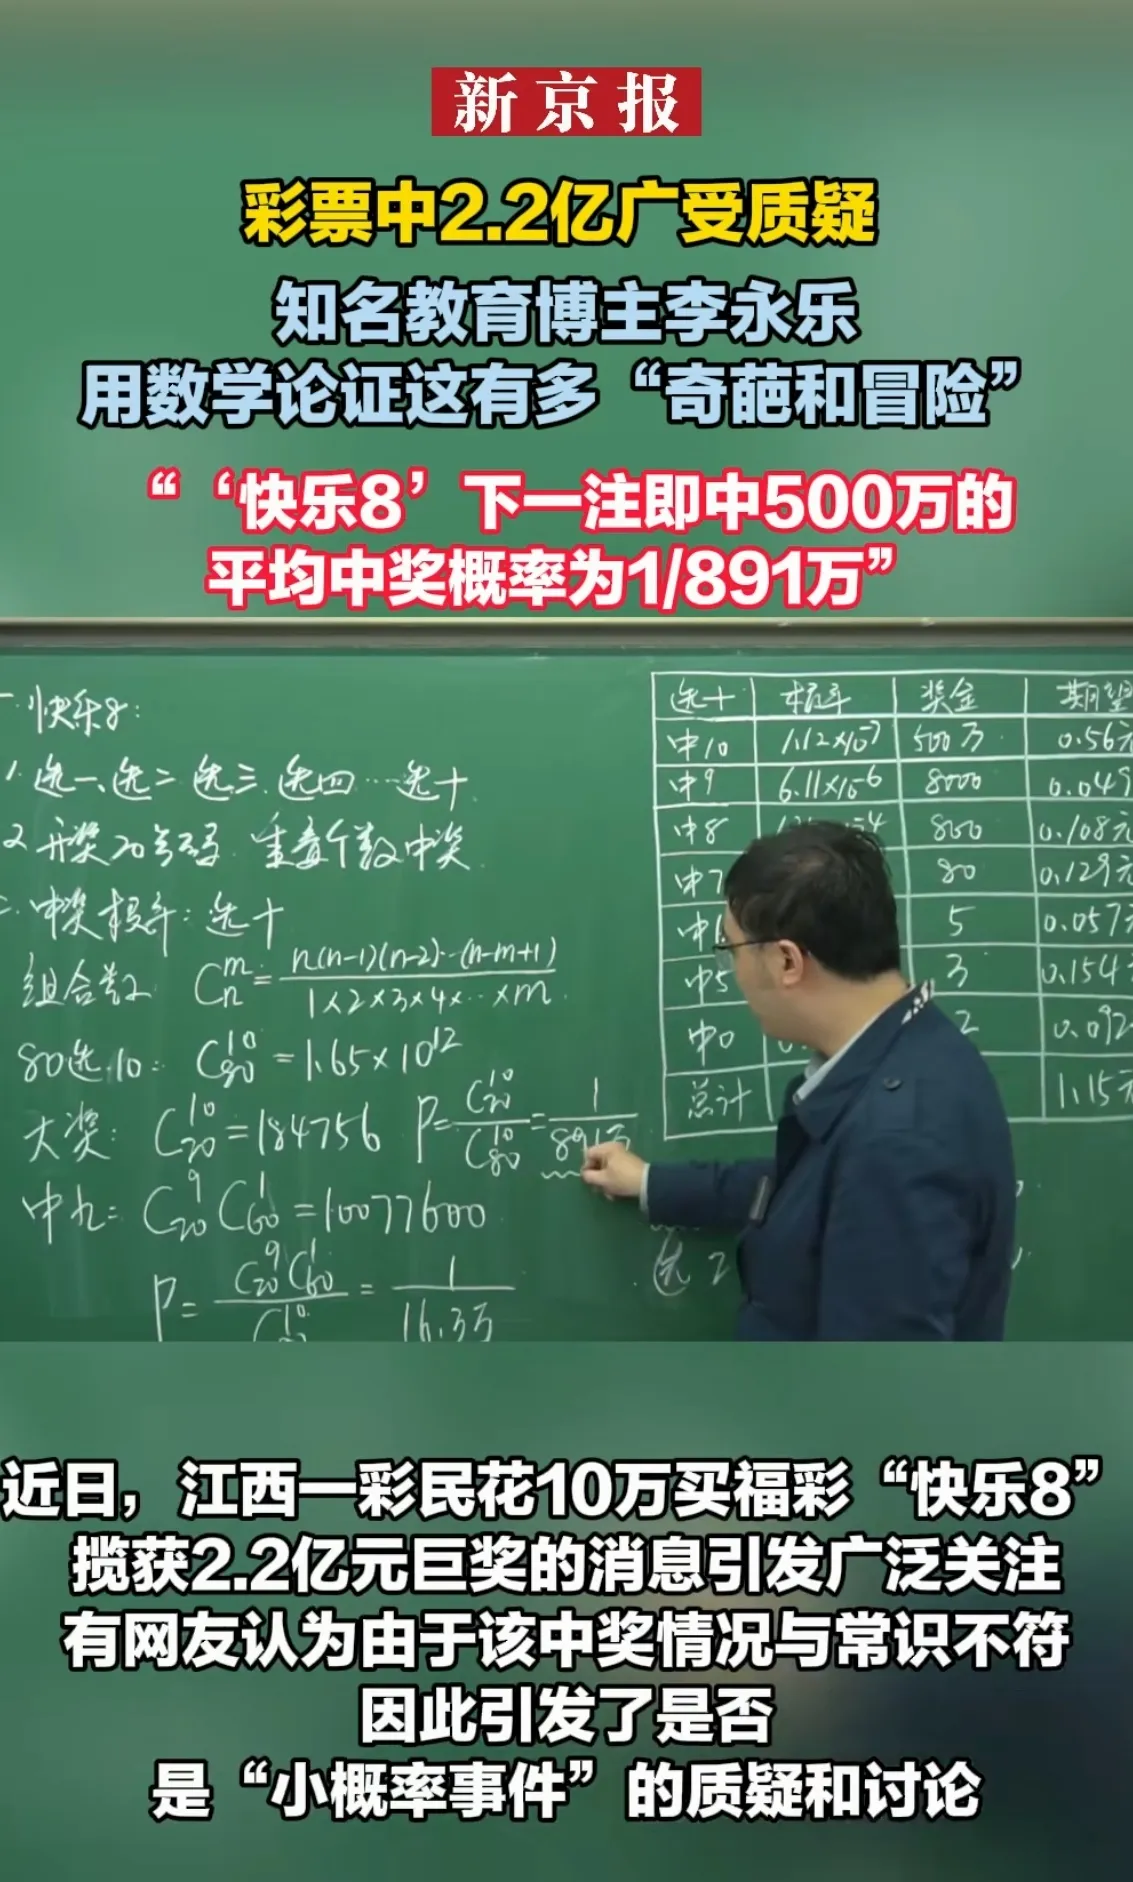 新京报
彩票中2.2亿广受质疑
知名教育博主李永乐
用数学论证这有多“奇葩和冒险”
“‘快乐8’下一注即中500万的
平均中奖概率为1/891万”
一. 快乐8:
1. 选一、选二 选三. 选四 … 选十
2. 开奖20号码. 重复个数中奖
二. 中奖概率: 选十
组合数 C_n^m = n(n-1)(n-2)…(n-m+1) / 1×2×3×4×…×m
80选10: C_80^10 = 1.65×10^12
大奖: C_20^10 = 184756 P = C_20^10 / C_80^10 = 1 / 891万
中九: C_20^9 C_60^1 = 10077600
P = C_20^9 C_60^1 / = 1 / 16.3万
选十 概率 奖金 期望
中10 1.12×10^-7 500万 0.56元
中9 6.11×10^-6 8000 0.049
中8 800 0.108元
中7 80 0.129元
中 5 0.057元
中5 3 0.154元
中0 2 0.092
总计 1.15元
选2
近日，江西一彩民花10万买福彩“快乐8”
揽获2.2亿元巨奖的消息引发广泛关注
有网友认为由于该中奖情况与常识不符
因此引发了是否
是“小概率事件”的质疑和讨论